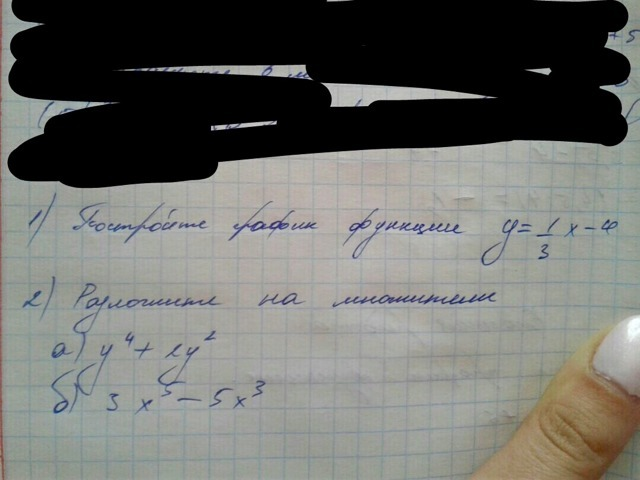 +5
1) Постройте график функции y=1/3 x-4
2) Разложите на множители
а) y⁴+2y²
б) 3x⁵-5x³